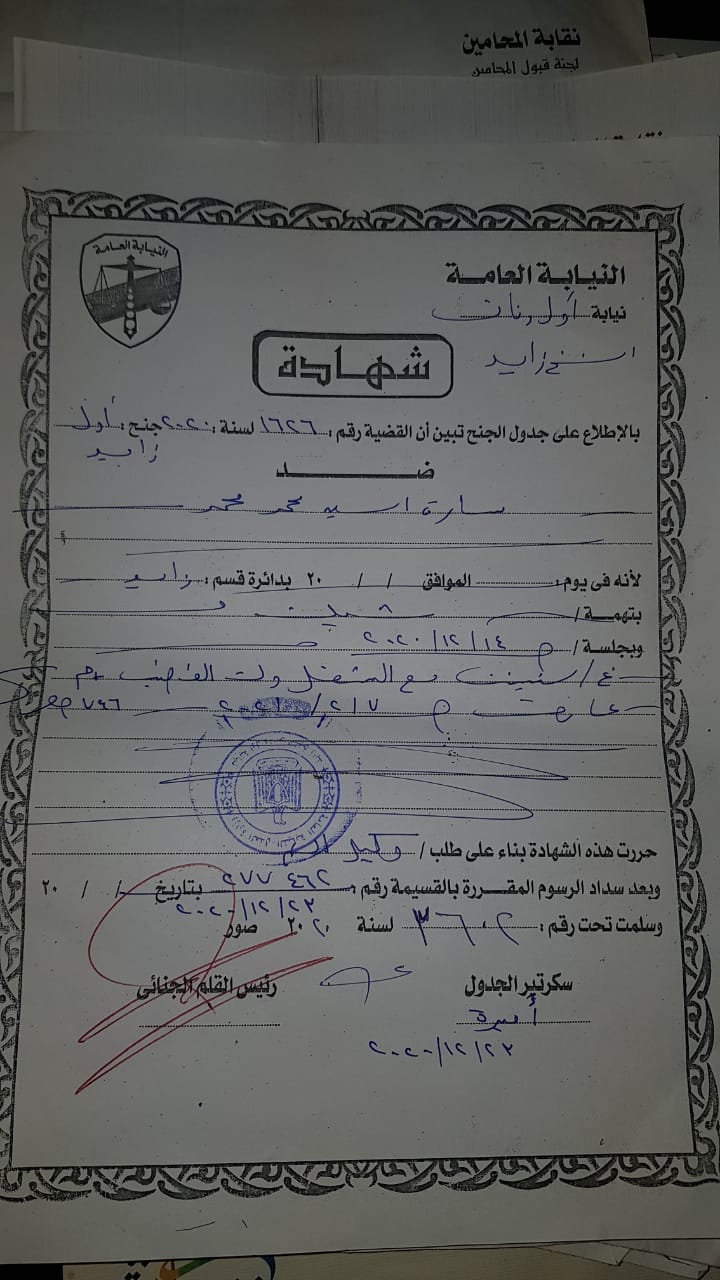 نقابة المحامين
لجنة قبول المحامين
النيابة العامة
النيابة العامة
نيابة أول
زايد
شهادة
بالإطلاع على جدول الجنح تبين أن القضية رقم : ١٦٢٦ لسنة : ٢٠٢٠ جنح : أول
زايد
ضد
سارة السيد محمد محمد
لأنه فى يوم : الموافق / / ٢٠ بدائرة قسم : زايد
بتهمة /
وبجلسة / ١٤/١٢/٢٠٢٠
غ/ سنتين مع الشغل
٧٤٦
حررت هذه الشهادة بناء على طلب / وكيل
وبعد سداد الرسوم المقررة بالقسيمة رقم : ٢٧٧٤٦٢ بتاريخ / / ٢٠
٢٣/١٢/٢٠٢٠
وسلمت تحت رقم : ٣٦٠٢ لسنة ٢٠٢٠ صور
سكرتير الجدول رئيس القلم الجنائى
أميرة
٢٣/١٢/٢٠٢٠